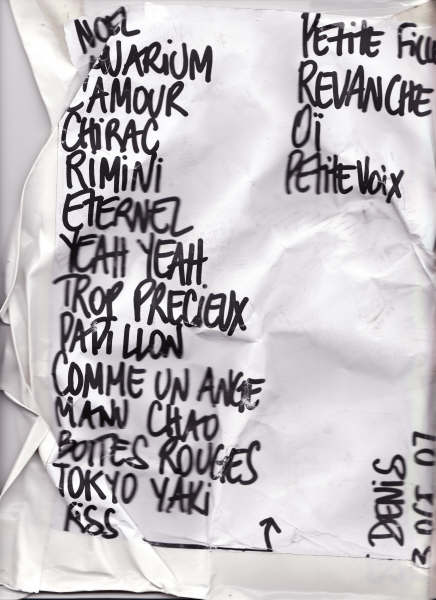 NOEL
QUARIUM
L'AMOUR
CHiRAC
RiMiNi
ETERNEL
YEAH YEAH
TROP PRECiEUX
PAViLLON
COMME UN ANGE
MANU CHAO
BOTTES ROUGES
TOKYO YAKi
KiSS
PETiTE FiLL
REVANCHE
OÏ
PETiTE VOiX
DENiS
3 OCT 07